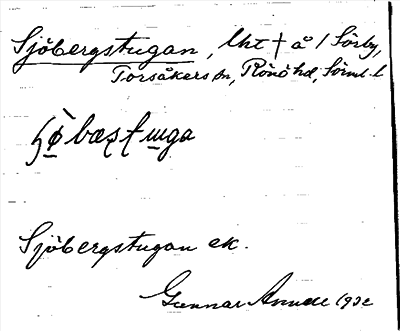 Sjöbergstugan, lht † å / Sörby,
Torsåkers sn, Rönö hd, Sörml. l.
Sjöbergstugan ek.
Gunnar 1932